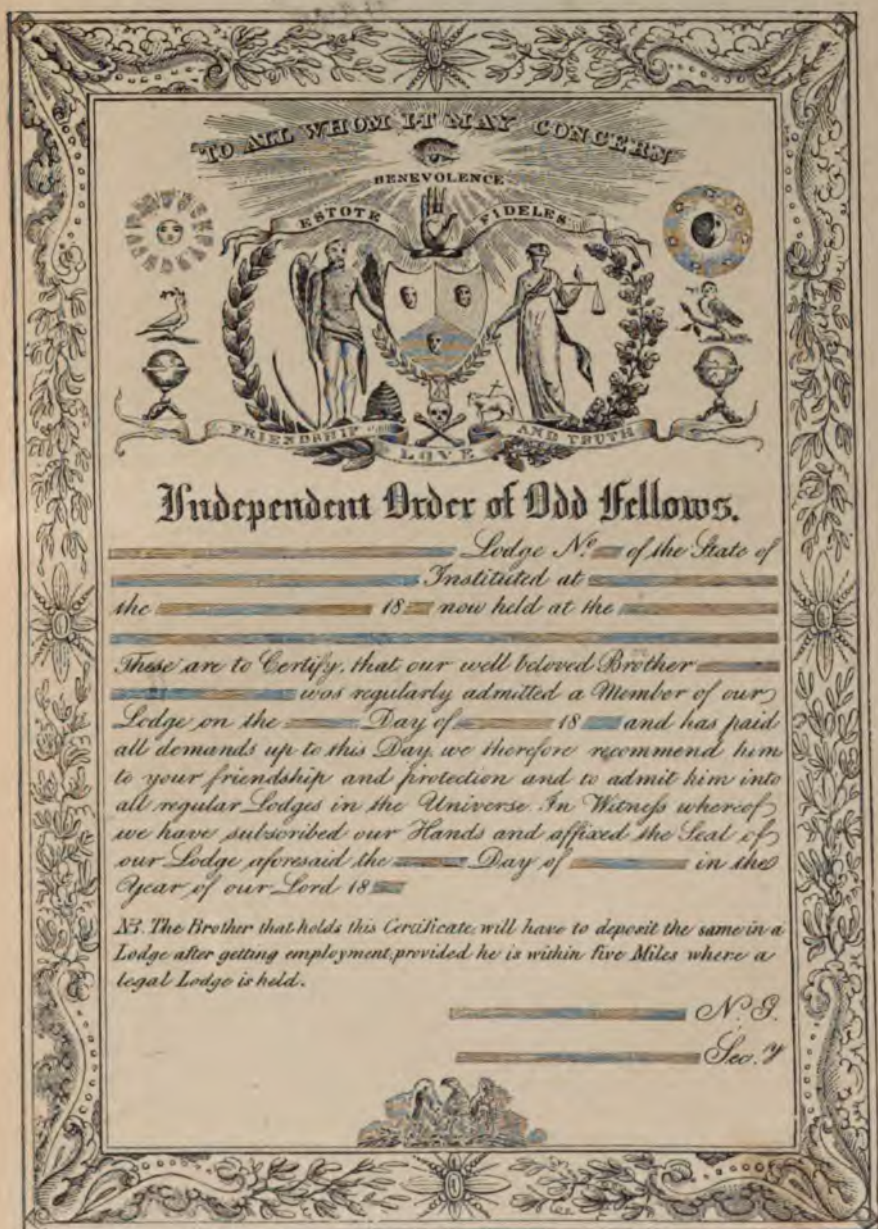 TO ALL WHOM IT MAY CONCERN
BENEVOLENCE
ESTOTE FIDELES
FRIENDSHIP LOVE AND TRUTH
Independent Order of Odd Fellows.
Lodge No. of the State of
Instituted at
the 18 now held at the
These are to Certify, that our well beloved Brother
was regularly admitted a Member of our
Lodge on the Day of 18 and has paid
all demands up to this Day we therefore recommend him
to your friendship and protection and to admit him into
all regular Lodges in the Universe In Witneſs whereof
we have subscribed our Hands and affixed the Seal of
our Lodge aforesaid the Day of in the
Year of our Lord 18
NB. The Brother that holds this Certificate will have to deposit the same in a
Lodge after getting employment, provided he is within five Miles where a
legal Lodge is held.
N. G.
Sec.y